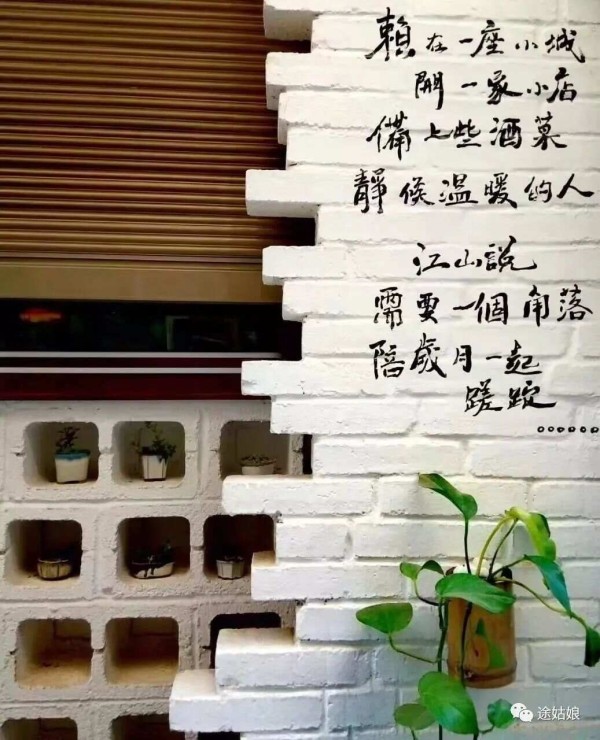 賴在一座小城
開一家小店
備上些酒菓
靜候溫暖的人
江山説
需要一個角落
陪歲月一起
蹉跎
......
途姑娘